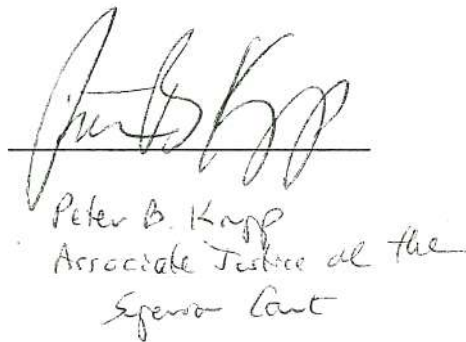 Peter B. Krupp
Associate Justice of the
Superior Court